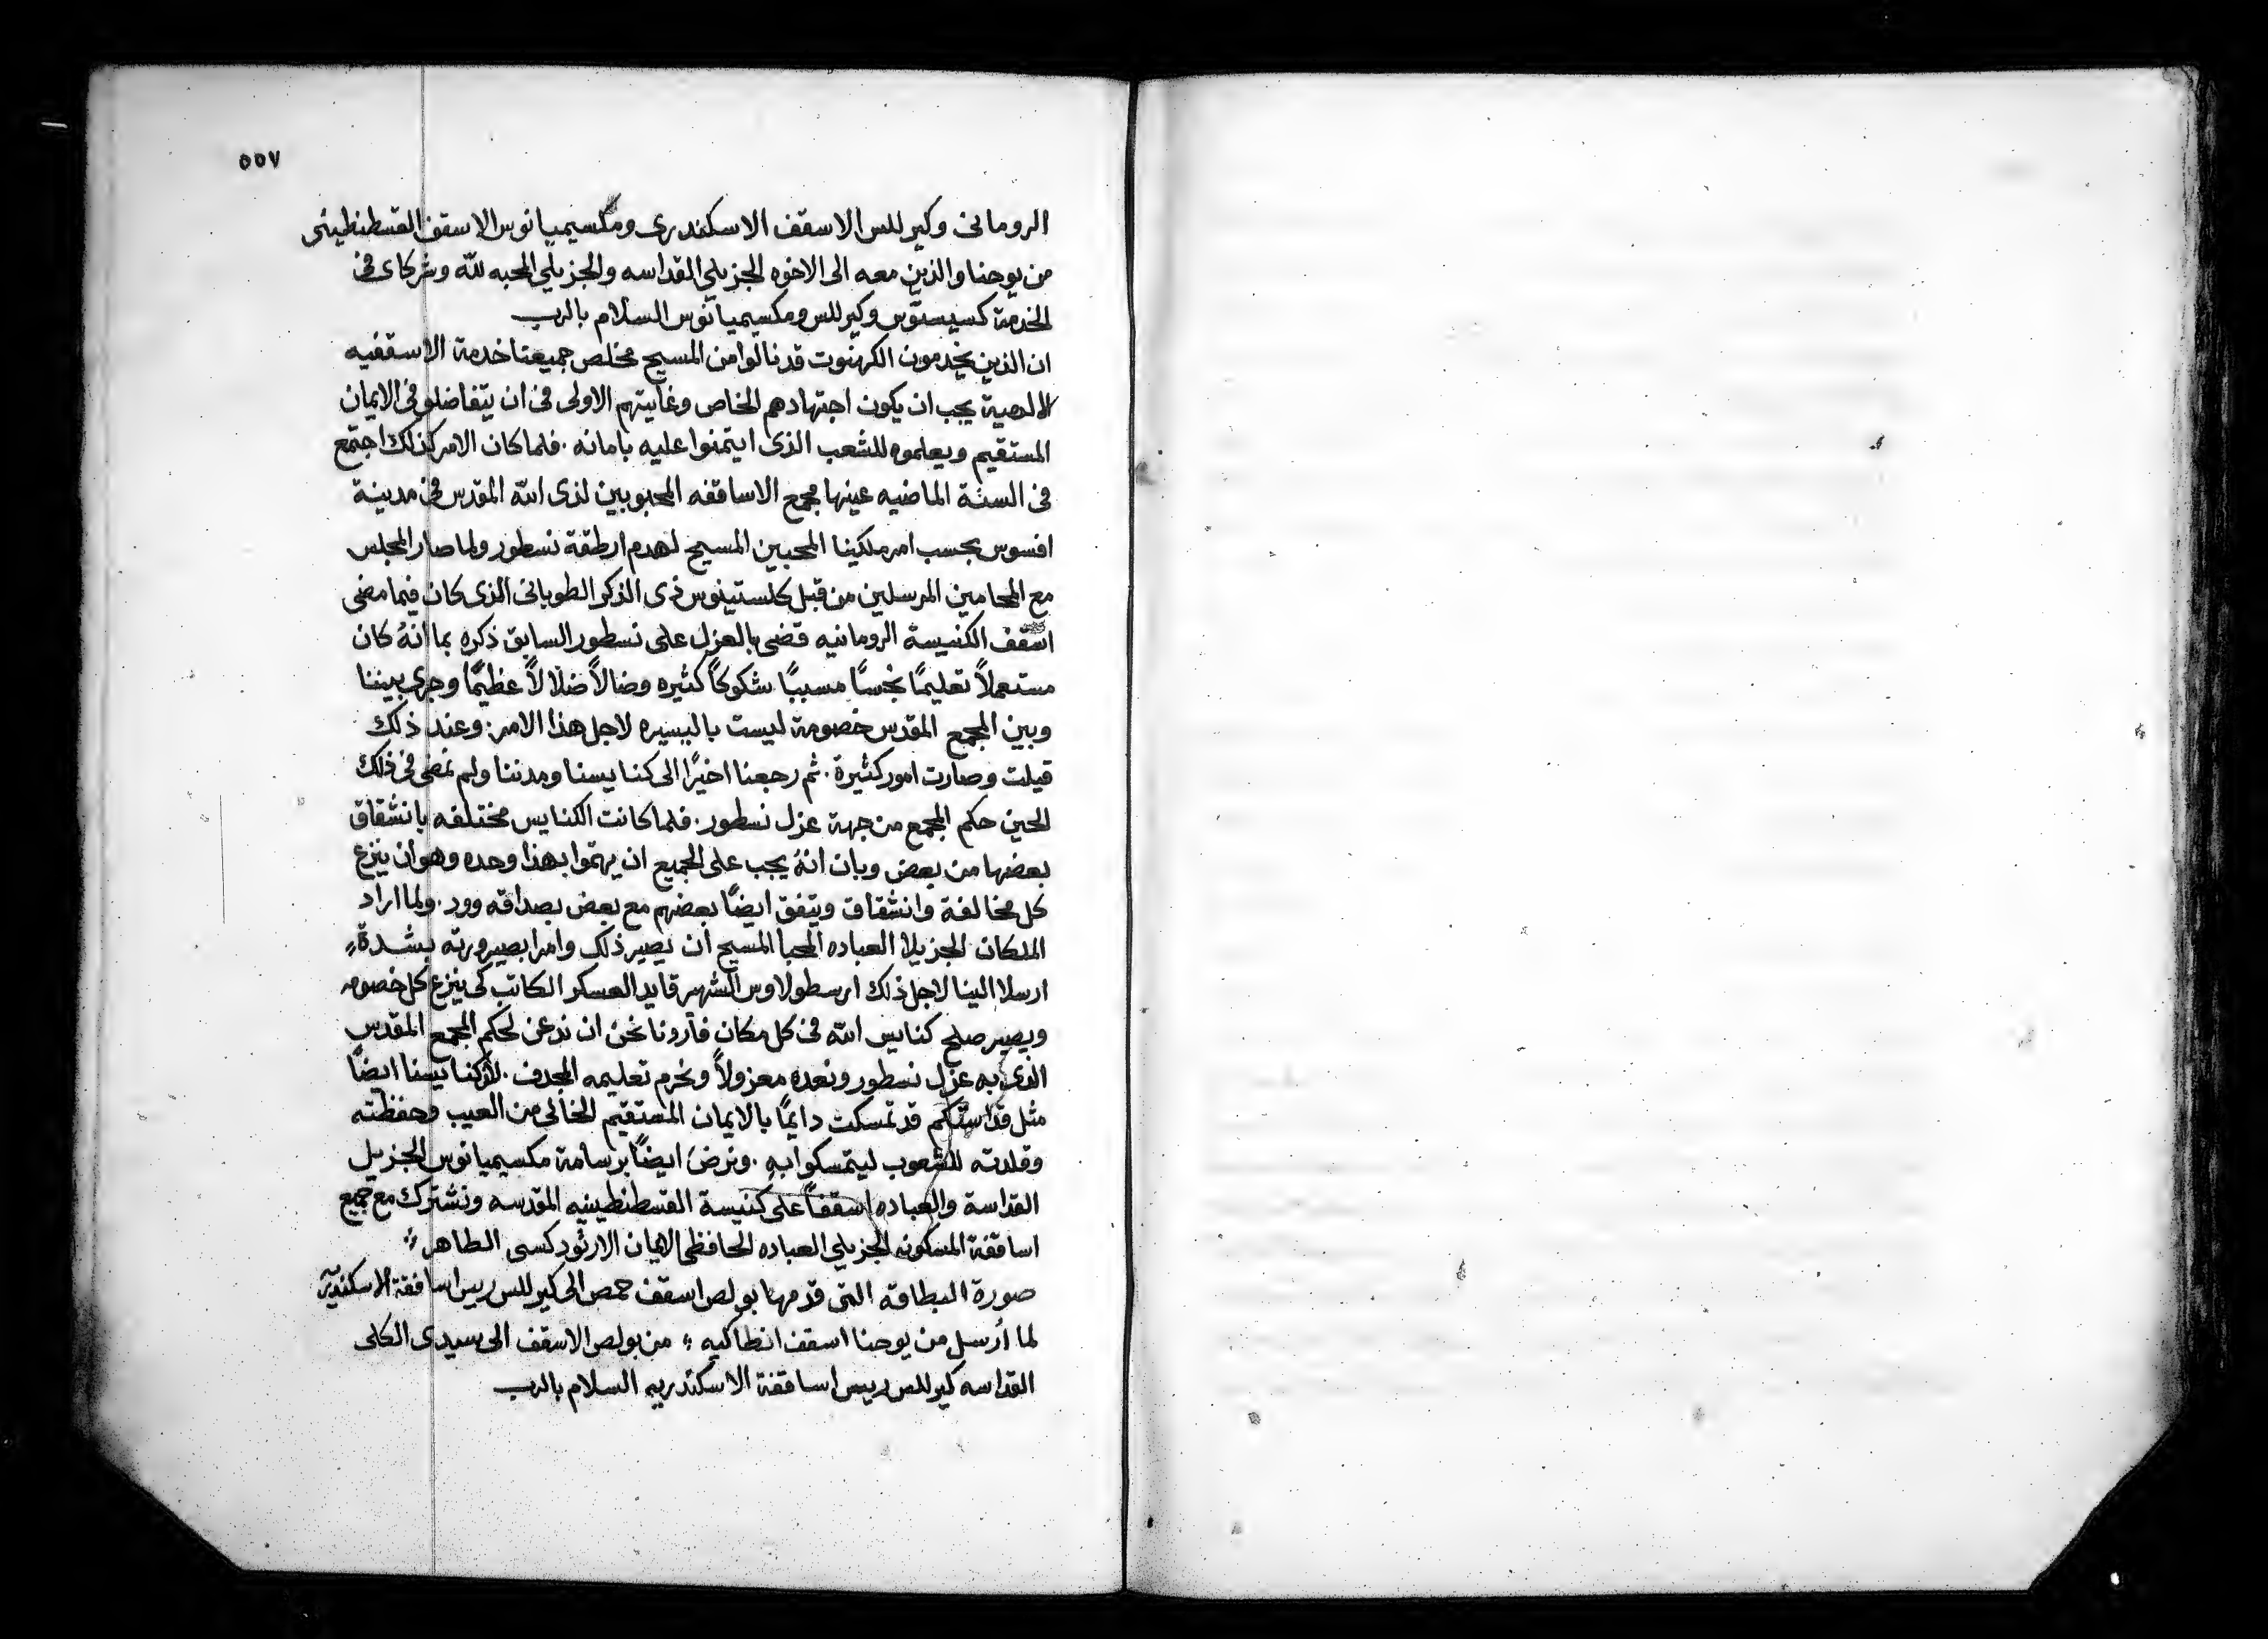 ٥٥٧
الرومانى وكيرللس الاسقف الاسكندرى ومكسيميانوس الاسقف القسطنطينى
من يوحنا والذين معه الى الاخوه الجزيلي القداسه والجزيلي المحبه لله وشركاى فى
الخدمة كسيستوس وكيرللس ومكسيميانوس السلام بالرب
ان الذين يخدمون الكهنوت قد نالوا من المسيح مخلص جميعنا خدمة الاسقفيه
الالهية يجب ان يكون اجتهادهم الخاص وغايتهم الاولى فى ان يتفاضلو فى الايمان
المستقيم ويعلموه للشعب الذى ايتمنوا عليه بامانه . فلما كان الامر كذلك اجتمع
فى السنة الماضيه عينها مجمع الاساقفه المحبوبين لذى الله المقدس فى مدينة
افسوس بحسب امر ملكينا المحبين المسيح لهدم ارطقة نسطور ولما صار المجلس
مع المحامين المرسلين من قبل كلستينوس ذى الذكر الطوبانى الذى كان فيما مضى
اسقف الكنيسة الرومانيه قضى بالعزل على نسطور السابق ذكره بما انهُ كان
مستعملاً تعليمًا نجسًا مسببًا شكوكًا كثيره وضالاً ضلالاً عظيمًا وجرى بيننا
وبين المجمع المقدس خصومة ليست باليسيره لاجل هذا الامر . وعند ذلك
قيلت وصارت امور كثيرة . ثم رجعنا اخيرًا الى كنايسنا ومدننا ولم نمضى فى ذلك
الحين حكم المجمع من جهة عزل نسطور . فلما كانت الكنايس مختلفه بانشقاق
بعضها من بعض وبان انهُ يجب على الجميع ان يهتموا بهذا وحده وهو ان ينزع
كل مخالفة وانشقاق ويتفق ايضًا بعضهم مع بعض بصداقه وود . ولما اراد
الملكان الجزيلا العباده المحبا المسيح ان يصير ذلك وامرا بصيرورته بشدةٍ
ارسلا الينا لاجل ذلك ارسطولاوس الشهير قايد العسكر الكاتب كى ينزع كل خصومه
ويصير صلح كنايس الله فى كل مكان فآرونا نحن ان ندعن لحكم المجمع المقدس
الذى به عزل نسطور ونعده معزولاً ونحرم تعليمه المجدف . لان كنايسنا ايضًا
مثل قداستكم قد تمسكت دايمًا بالايمان المستقيم الخالى من العيب وحفظته
وقلدته للشعوب ليتمسكوا بهِ . ونرضى ايضًا برسامة مكسيميانوس الجزيل
القداسة والعباده اسقفاً على كنيسة القسطنطينيه المقدسه ونشترك مع جميع
اساقفة المسكونه الجزيلي العباده الحافظى الايمان الارثودكسى الطاهر ؞
صورة البطاقه التى قدمها بولص اسقف حمص الى كيرللس رييس اساقفة الاسكندرية
لما اُرسل من يوحنا اسقف انطاكيه ؞ من بولص الاسقف الى سيدى الكلى
القداسه كيرللس رييس اساقفة الاسكندريه السلام بالرب